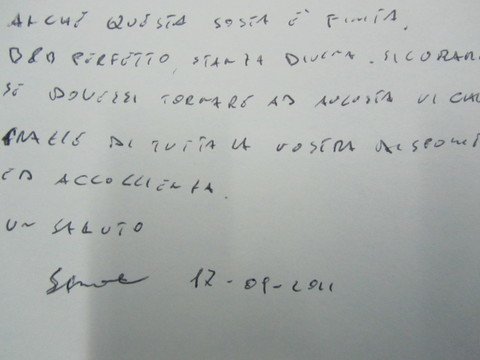 ANCHE QUESTA SOSTA E' FINITA.
B&B PERFETTO, STANZA DIVINA. SICURAM
SE DOVESSI TORNARE AD AUGUSTA VI CHI
GRAZIE DI TUTTA LA VOSTRA DISPONI
ED ACCOGLIENZA.
UN SALUTO
12-09-2011